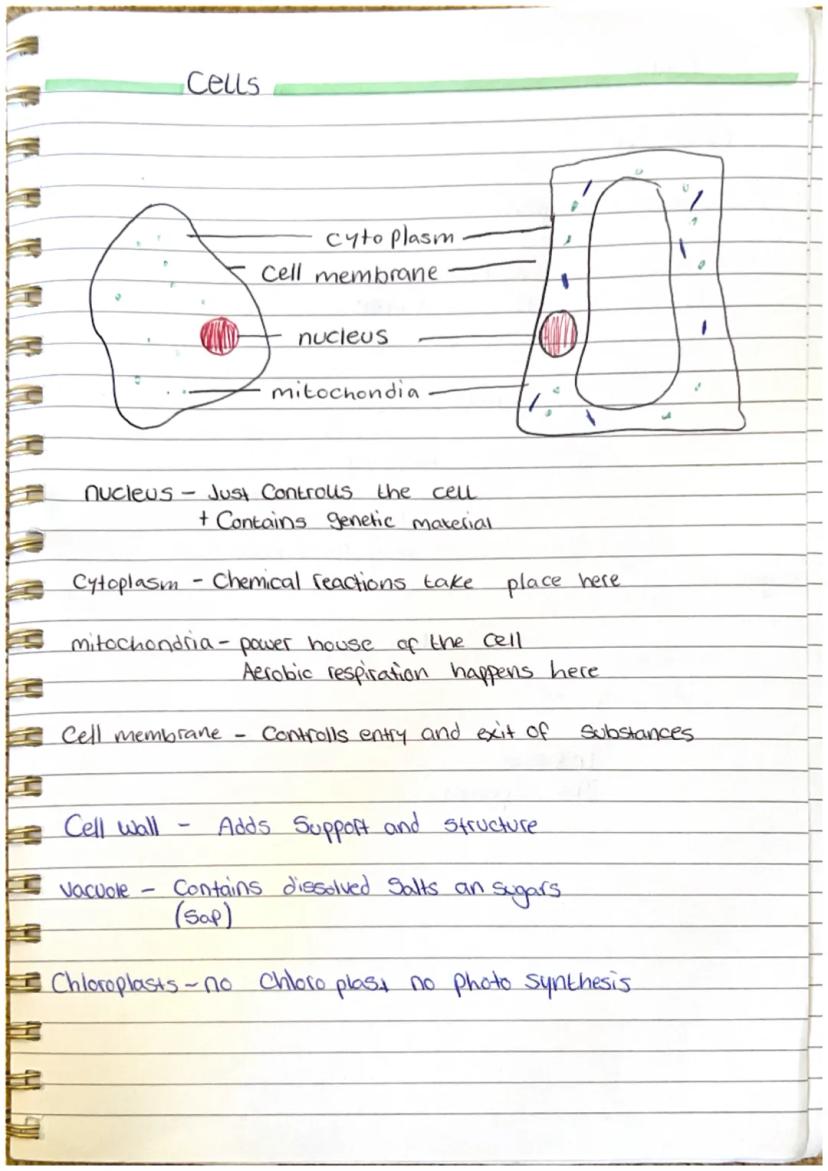 Cells
cytoplasm
cell membrane
nucleus
mitochondia
nucleus - Just Controlls the cell
+ Contains genetic material
Cytoplasm - Chemical reactions take place here
mitochondria - power house of the cell
Aerobic respiration happens here
Cell membrane - Controlls entry and exit of substances
Cell wall - Adds Support and structure
Vacuole - Contains dissolved Salts an sugars
(Sap)
Chloroplasts - no Chloro plast no photo synthesis